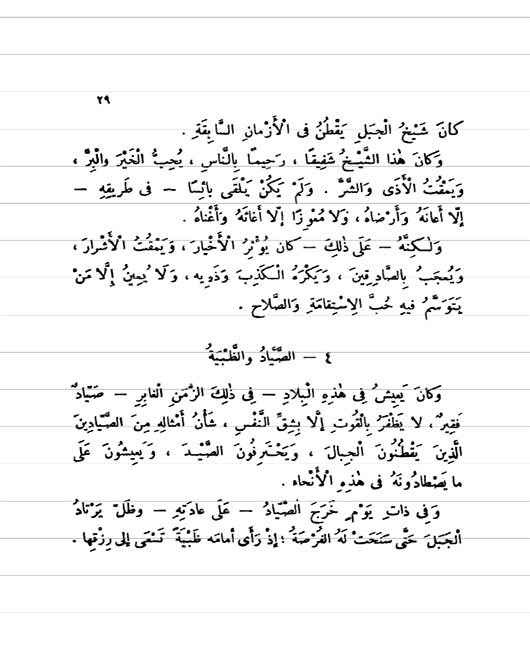 ٢٩
كانَ شَيْخُ الْجَبَلِ يَقْطُنُ فى الْأَزْمانِ السَّابِقَةِ .
وَكانَ هٰذا الشَّيْخُ شَفِيقًا ، رَحِيمًا بِالنَّاسِ ، يُحِبُّ الْخَيْرَ والْبِرَّ ،
وَيَمْقُتُ الْأَذَى وَالشَّرَّ . وَلَمْ يَكُنْ يَلْقَى بائِسًا — فى طَرِيقِهِ —
إِلَّا أَعانَهُ وَأَرْضاهُ ، وَلا مُعْوِزًا إِلَّا أَغاثَهُ وَأَغْناهُ .
وَلٰكِنَّهُ — عَلَى ذٰلِكَ — كان يُؤْثِرُ الْأَخْيارَ ، وَيَمْقُتُ الْأَشْرارَ ،
وَيُعجَبُ بِالصَّادِقِينَ ، وَيَكْرَهُ الْكَذِبَ وَذَوِيه ، وَلَا يُعِينُ إِلَّا مَنْ
يَتَوَسَّمُ فِيهِ حُبَّ الِاسْتِقامَةِ وَالصَّلاحِ .
٤ — الصَّيَّادُ والظَّبْيَةُ
وَكانَ يَعِيشُ فى هٰذِهِ الْبِلادِ — فى ذٰلِكَ الزَّمَنِ الْغابِرِ — صَيَّادٌ
فَقِيرٌ ، لا يَظْفَرُ بِالْقُوتِ إِلَّا بِشِقِّ النَّفْسِ ، شَأْنُ أَمْثالِهِ مِنَ الصَّيَّادِينَ
الَّذِينَ يَقْطُنُونَ الْجِبالَ ، وَيَحْتَرِفُونَ الصَّيْدَ ، وَيَعِيشُونَ عَلَى
ما يَصْطادُونَهُ فى هٰذِهِ الْأَنْحاء .
وَفِى ذاتِ يَوْمٍ خَرَجَ الصَّيَّادُ — عَلَى عادَتِهِ — وظَلَّ يَرْتادُ
الْجَبَلَ حَتَّى سَنَحَتْ لَهُ الفُرْصَةُ ؛ إِذْ رَأَى أمامَه ظَبْيَةً تَسْعَى إلى رِزْقِها .